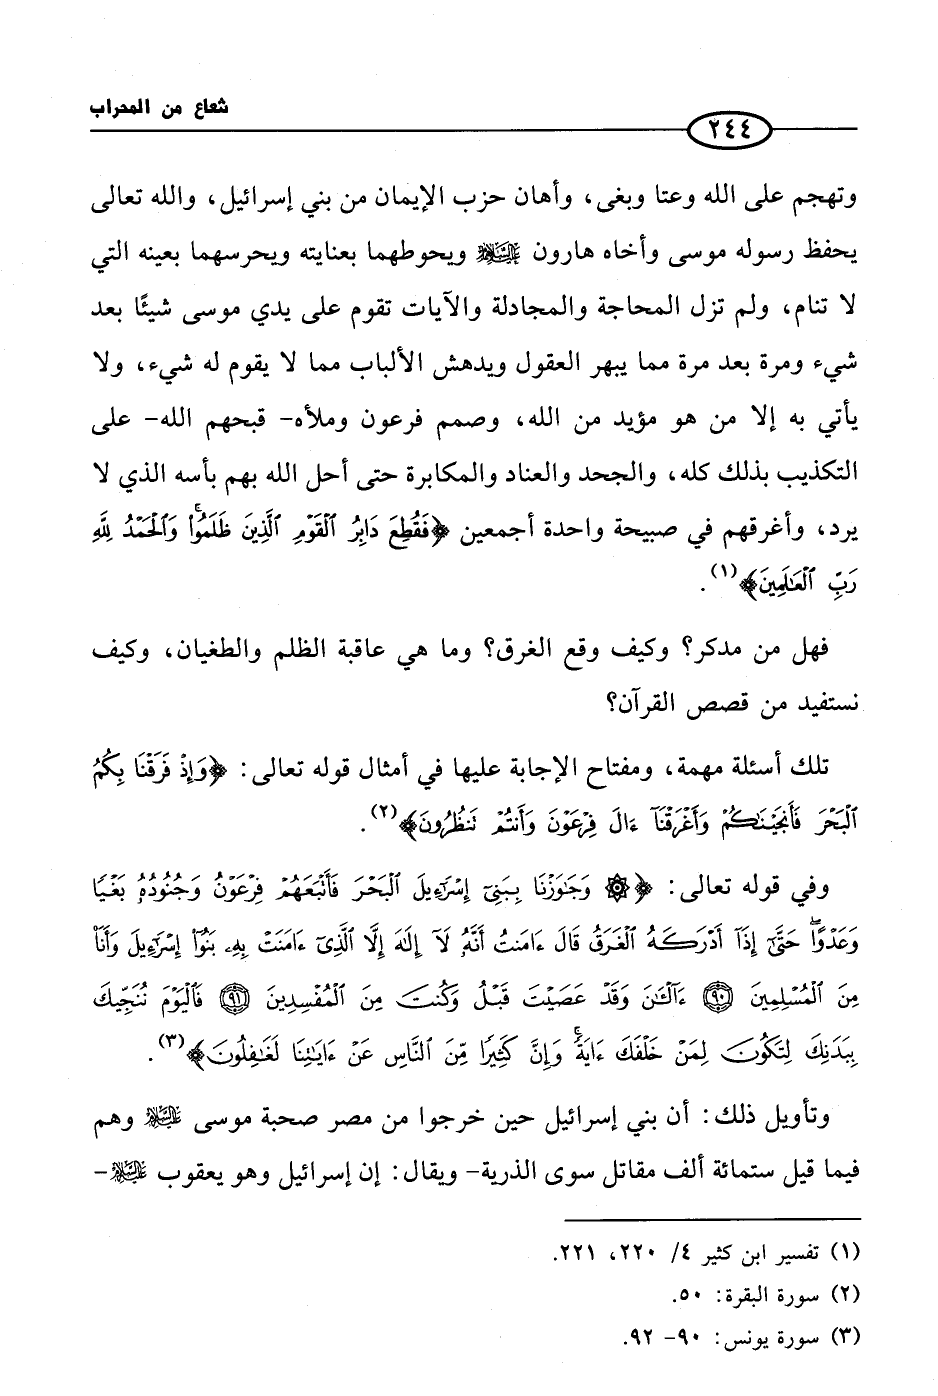 شعاع من المحراب
٢٤٤
وتهجم على الله وعتا وبغى، وأهان حزب الإيمان من بني إسرائيل، والله تعالى
يحفظ رسوله موسى وأخاه هارون عليهما السلام ويحوطهما بعنايته ويحرسهما بعينه التي
لا تنام، ولم تزل المحاجة والمجادلة والآيات تقوم على يدي موسى شيئًا بعد
شيء ومرة بعد مرة مما يبهر العقول ويدهش الألباب مما لا يقوم له شيء، ولا
يأتي به إلا من هو مؤيد من الله، وصمم فرعون وملأه- قبحهم الله- على
التكذيب بذلك كله، والجحد والعناد والمكابرة حتى أحل الله بهم بأسه الذي لا
يرد، وأغرقهم في صبيحة واحدة أجمعين ﴿فَقُطِعَ دَابِرُ ٱلْقَوْمِ ٱلَّذِينَ ظَلَمُوا۟ ۚ وَٱلْحَمْدُ لِلَّهِ
رَبِّ ٱلْعَـٰلَمِينَ﴾(١).
فهل من مدكر؟ وكيف وقع الغرق؟ وما هي عاقبة الظلم والطغيان، وكيف
نستفيد من قصص القرآن؟
تلك أسئلة مهمة، ومفتاح الإجابة عليها في أمثال قوله تعالى: ﴿وَإِذْ فَرَقْنَا بِكُمُ
ٱلْبَحْرَ فَأَنجَيْنَـٰكُمْ وَأَغْرَقْنَآ ءَالَ فِرْعَوْنَ وَأَنتُمْ تَنظُرُونَ﴾(٢).
وفي قوله تعالى: ﴿۞ وَجَـٰوَزْنَا بِبَنِىٓ إِسْرَٰٓءِيلَ ٱلْبَحْرَ فَأَتْبَعَهُمْ فِرْعَوْنُ وَجُنُودُهُۥ بَغْيًا
وَعَدْوًا ۖ حَتَّىٰٓ إِذَآ أَدْرَكَهُ ٱلْغَرَقُ قَالَ ءَامَنتُ أَنَّهُۥ لَآ إِلَـٰهَ إِلَّا ٱلَّذِىٓ ءَامَنَتْ بِهِۦ بَنُوٓا۟ إِسْرَٰٓءِيلَ وَأَنَا۠
مِنَ ٱلْمُسْلِمِينَ ﴿٩٠﴾ ءَآلْـَٔـٰنَ وَقَدْ عَصَيْتَ قَبْلُ وَكُنتَ مِنَ ٱلْمُفْسِدِينَ ﴿٩١﴾ فَٱلْيَوْمَ نُنَجِّيكَ
بِبَدَنِكَ لِتَكُونَ لِمَنْ خَلْفَكَ ءَايَةً ۚ وَإِنَّ كَثِيرًا مِّنَ ٱلنَّاسِ عَنْ ءَايَـٰتِنَا لَغَـٰفِلُونَ﴾(٣).
وتأويل ذلك: أن بني إسرائيل حين خرجوا من مصر صحبة موسى عليه السلام وهم
فيما قيل ستمائة ألف مقاتل سوى الذرية- ويقال: إن إسرائيل وهو يعقوب عليه السلام-
(١) تفسير ابن كثير ٤/ ٢٢٠، ٢٢١.
(٢) سورة البقرة: ٥٠.
(٣) سورة يونس: ٩٠- ٩٢.